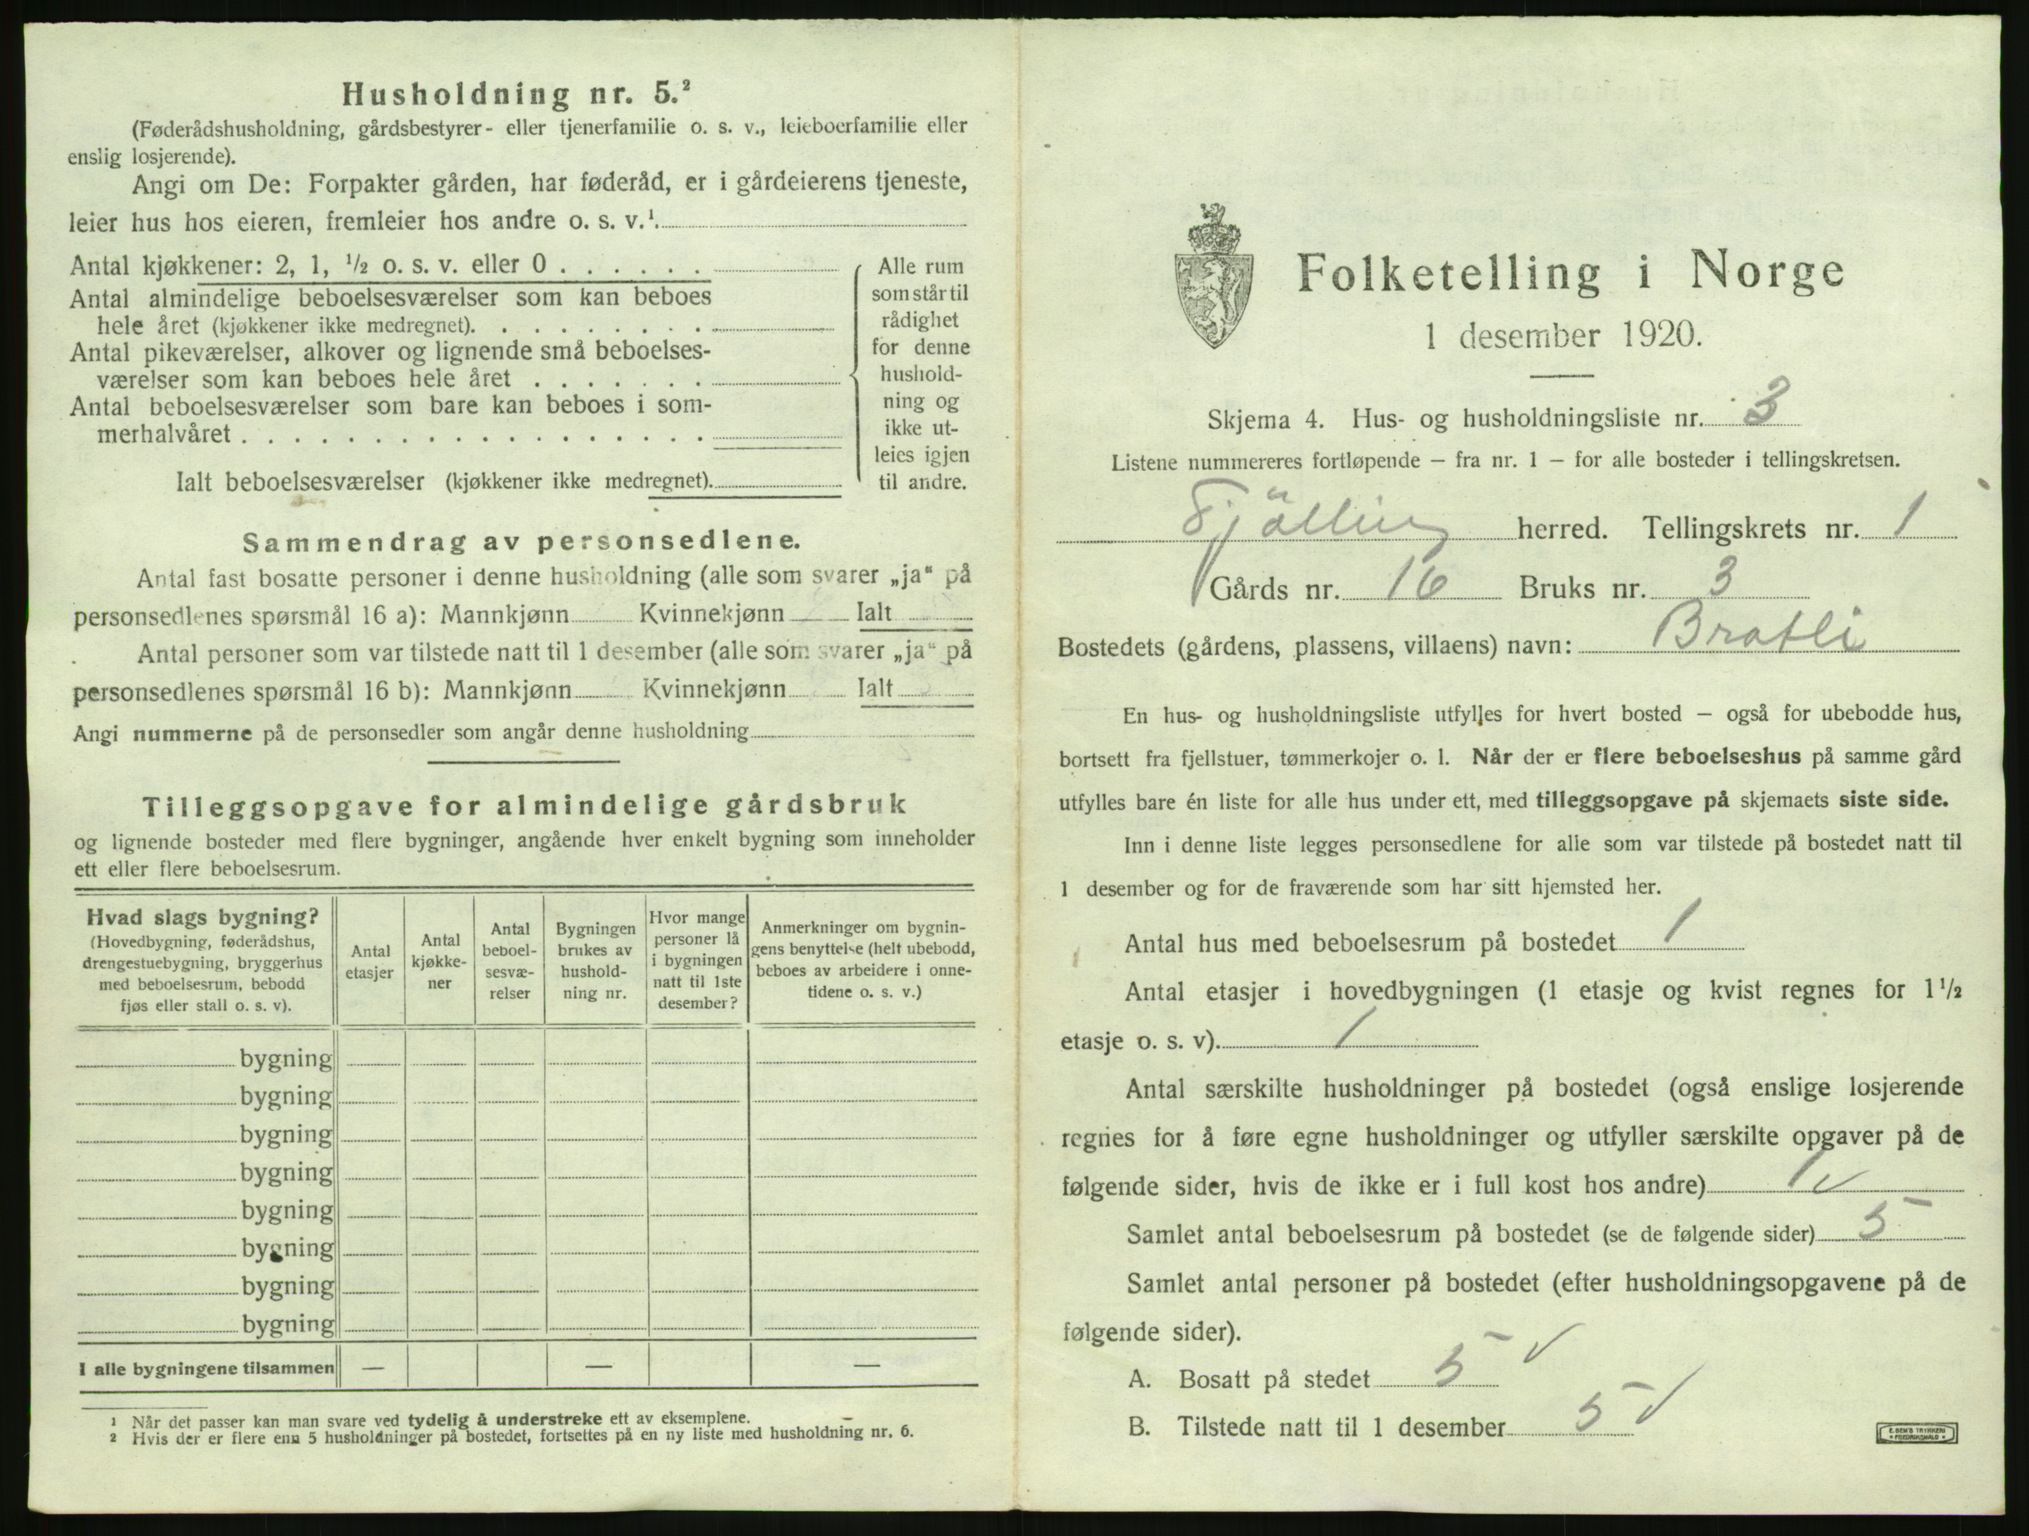 Husholdning nr. 5.²
(Føderådshusholdning, gårdsbestyrer- eller tjenerfamilie o. s. v., leieboerfamilie eller
enslig losjerende).
Angi om De: Forpakter gården, har føderåd, er i gårdeierens tjeneste,
leier hus hos eieren, fremleier hos andre o. s. v.¹.
Antal kjøkkener: 2, 1, ½ o. s. v. eller 0 . . . . . .
Antal almindelige beboelsesværelser som kan beboes
hele året (kjøkkener ikke medregnet). . . . . . . . .
Antal pikeværelser, alkover og lignende små beboelses-
værelser som kan beboes hele året . . . . . . .
Antal beboelsesværelser som bare kan beboes i som-
merhalvåret . . . . . . . . . . . . . . . . . .
Ialt beboelsesværelser (kjøkkener ikke medregnet).
Alle rum
som står til
rådighet
for denne
hushold-
ning og
ikke ut-
leies igjen
til andre.
Sammendrag av personsedlene.
Antal fast bosatte personer i denne husholdning (alle som svarer „ja" på
personsedlenes spørsmål 16 a): Mannkjønn Kvinnekjønn Ialt
Antal personer som var tilstede natt til 1 desember (alle som svarer „ja" på
personsedlenes spørsmål 16 b): Mannkjønn Kvinnekjønn Ialt
Angi nummerne på de personsedler som angår denne husholdning
Tilleggsopgave for almindelige gårdsbruk
og lignende bosteder med flere bygninger, angående hver enkelt bygning som inneholder
ett eller flere beboelsesrum.
Hvad slags bygning?
(Hovedbygning, føderådshus,
drengestuebygning, bryggerhus
med beboelsesrum, bebodd
fjøs eller stall o. s. v).
Antal
etasjer
Antal
kjøkke-
ner
Antal
beboel-
sesvæ-
relser
Bygningen
brukes av
hushold-
ning nr.
Hvor mange
personer lå
i bygningen
natt til 1ste
desember?
Anmerkninger om bygnin-
gens benyttelse (helt ubebodd,
beboes av arbeidere i onne-
tidene o. s. v.)
bygning
bygning
bygning
bygning
bygning
bygning
bygning
bygning
I alle bygningene tilsammen — — —
¹ Når det passer kan man svare ved tydelig å understreke ett av eksemplene.
² Hvis der er flere enn 5 husholdninger på bostedet, fortsettes på en ny liste med husholdning nr. 6.
Folketelling i Norge
1 desember 1920.
Skjema 4. Hus- og husholdningsliste nr. 3
Listene nummereres fortløpende – fra nr. 1 – for alle bosteder i tellingskretsen.
Tjølling herred. Tellingskrets nr. 1
Gårds nr. 16 Bruks nr. 3
Bostedets (gårdens, plassens, villaens) navn: Bratli
En hus- og husholdningsliste utfylles for hvert bosted – også for ubebodde hus,
bortsett fra fjellstuer, tømmerkojer o. l. Når der er flere beboelseshus på samme gård
utfylles bare én liste for alle hus under ett, med tilleggsopgave på skjemaets siste side.
Inn i denne liste legges personsedlene for alle som var tilstede på bostedet natt til
1 desember og for de fraværende som har sitt hjemsted her.
Antal hus med beboelsesrum på bostedet 1
Antal etasjer i hovedbygningen (1 etasje og kvist regnes for 1½
etasje o. s. v). 1
Antal særskilte husholdninger på bostedet (også enslige losjerende
regnes for å føre egne husholdninger og utfyller særskilte opgaver på de
følgende sider, hvis de ikke er i full kost hos andre) 1 ✓
Samlet antal beboelsesrum på bostedet (se de følgende sider) 5
Samlet antal personer på bostedet (efter husholdningsopgavene på de
følgende sider).
A. Bosatt på stedet 5 ✓
B. Tilstede natt til 1 desember 5 ✓
E. SEM'S TRYKKERI
• FREDRIKSHALD •